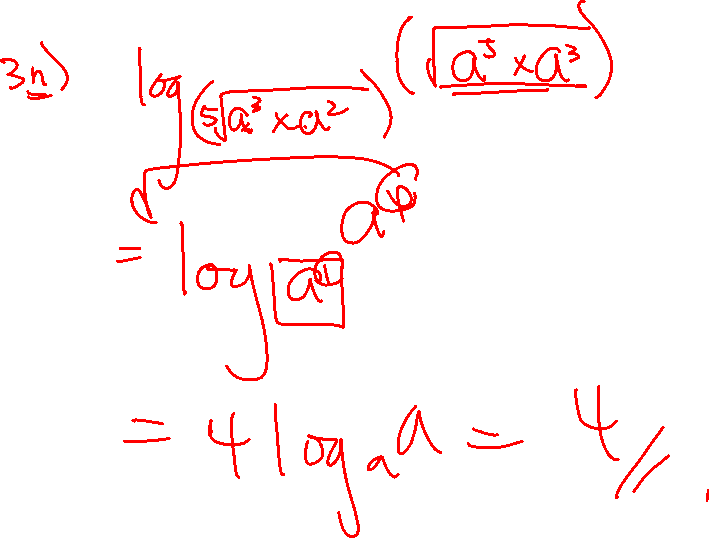 3n) log_(⁵√(a³ × a²)) (√(a⁵ × a³))
= log_(a¹) a⁴
= 4 log_a a = 4